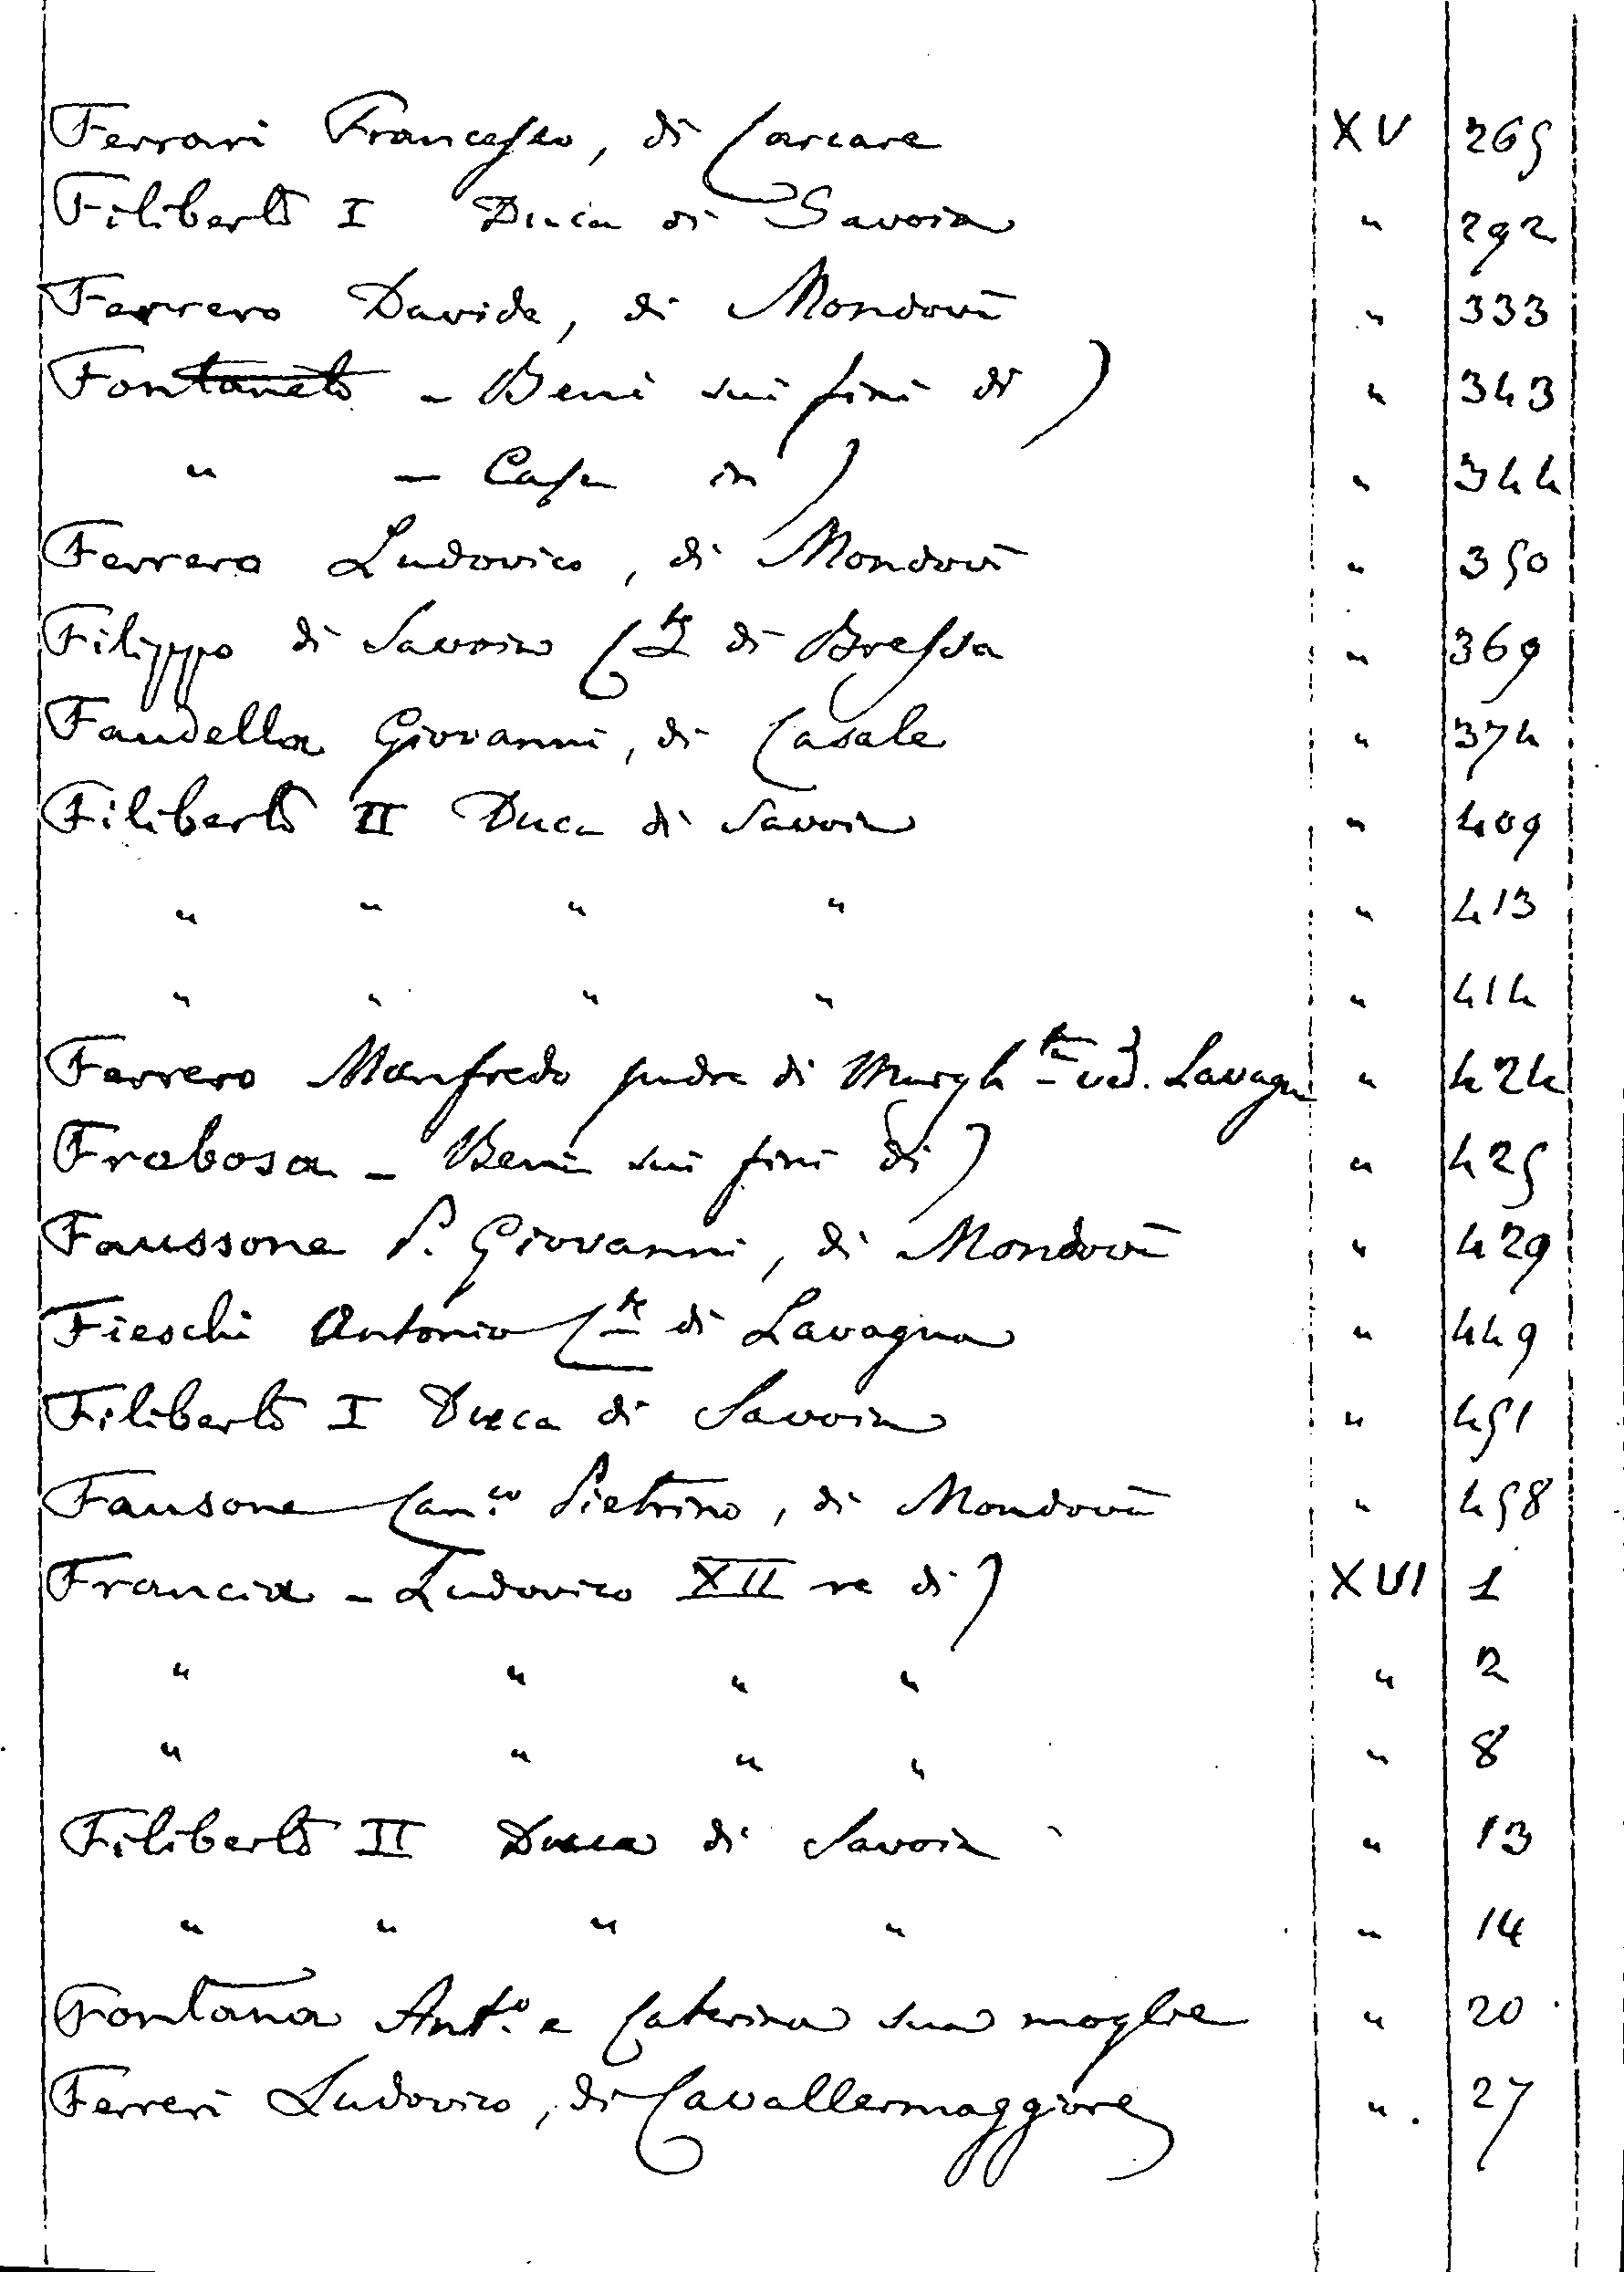 Ferrari Francesco, di Carcare XV 265
Filiberto I Duca di Savoia " 292
Ferrero Davide, di Mondovì " 333
Fontaneto - Beni sui fini di) " 343
" - Casa in) " 344
Ferrero Ludovico, di Mondovì " 350
Filippo di Savoia Cte di Bressa " 369
Faudella Giovanni, di Casale " 374
Filiberto II Duca di Savoia " 409
" " " " " 413
" " " " " 414
Ferrero Manfredo padre di Margh.ta ved. Lavagna " 424
Frabosa - Beni sui fini di) " 425
Faussone P. Giovanni, di Mondovì " 429
Fieschi Antonio Cte di Lavagna " 449
Filiberto I Duca di Savoia " 451
Fausone Can.co Pietrino, di Mondovì " 458
Francia - Ludovico XII re di) XVI 1
" " " " " 2
" " " " " 8
Filiberto II Duca di Savoia " 13
" " " " " 14
Fontana Ant.o e Caterina sua moglie " 20
Ferreri Ludovico, di Cavallermaggiore " 27